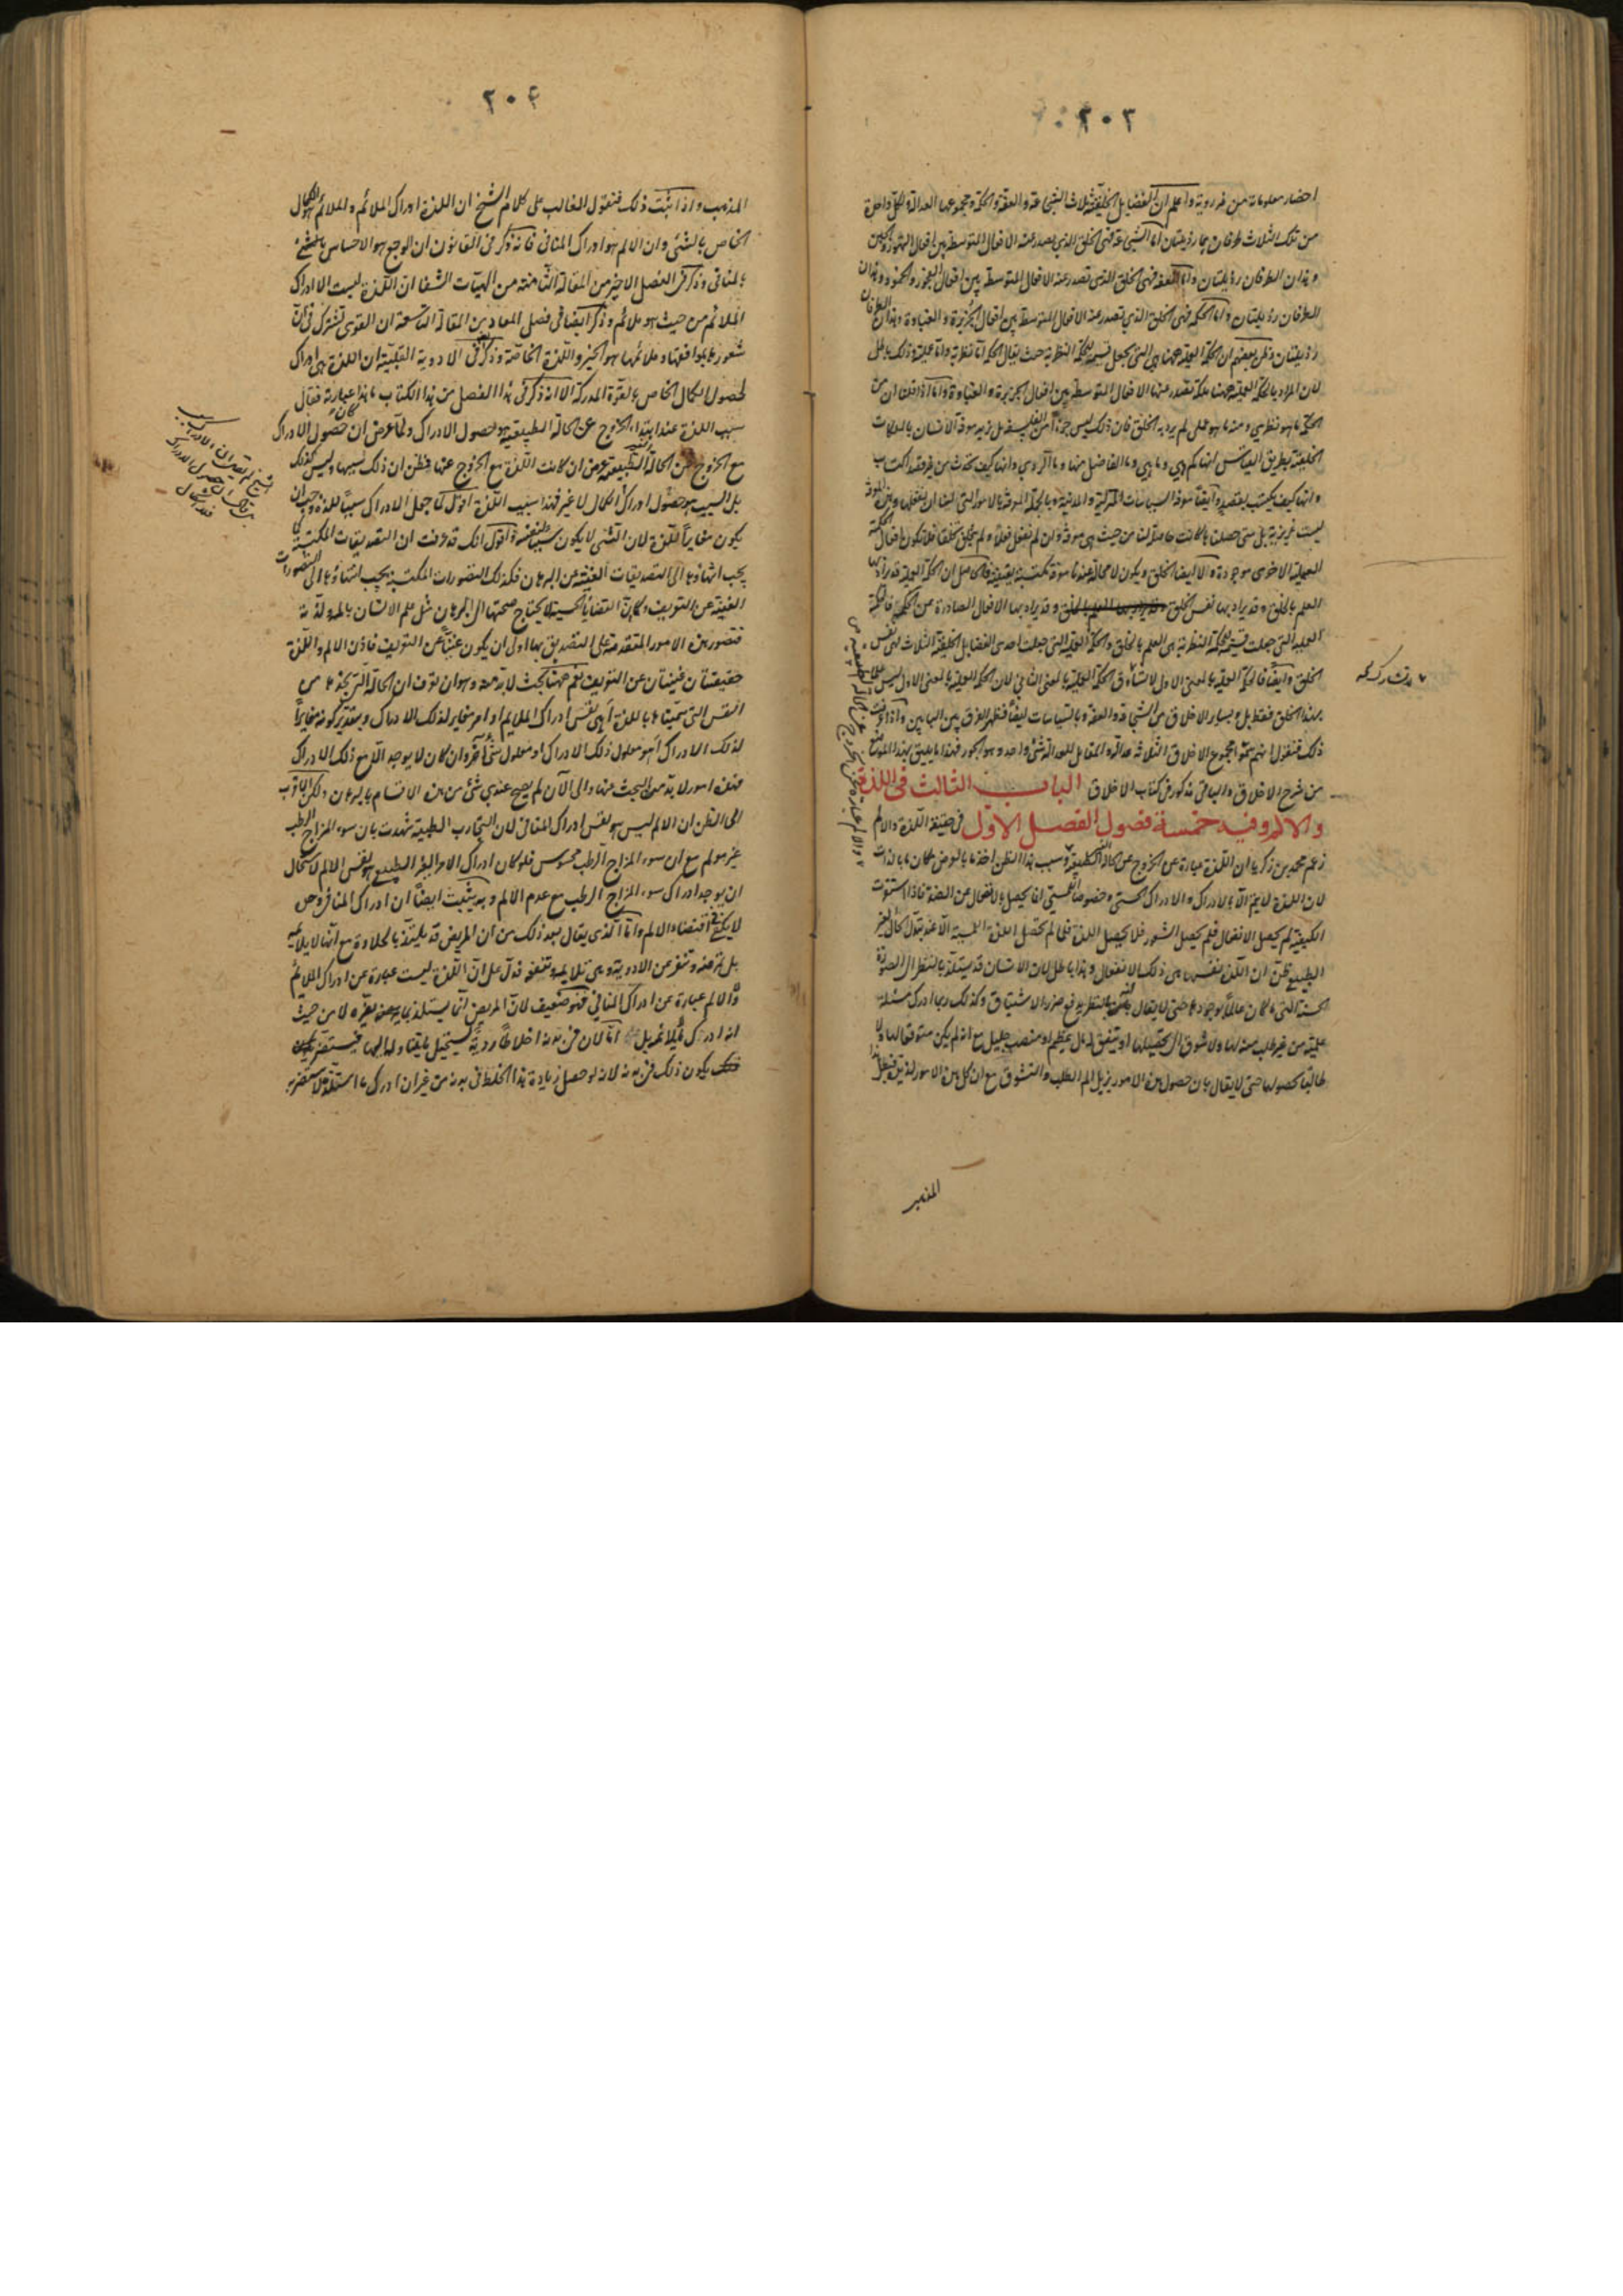 ٢٠٣
احضار معلومات من غير روية واعلم ان الفضايل الخلقية ثلاث الشجاعة والعفة والحكمة ومجموعها العدالة ولكل واحدة
من تلك الثلاث طرفان هما رذيلتان اما الشجاعة فهى الخلق الذى يصدر عنه الافعال المتوسطة بين افعال التهور والجبن
وهذان الطرفان رذيلتان واما العفة فهى الخلق الذى تصدر عنه الافعال المتوسطة بين افعال الفجور والخمود وهذان
الطرفان رذيلتان واما الحكمة فهى الخلق الذى تصدر عنه الافعال المتوسطة بين افعال الجربزة والغباوة وهذان الطرفان
رذيلتان وظن بعضهم ان الحكمة العملية ههنا هى التى تجعل قسيمة للحكمة النظرية حيث يقال الحكمة اما نظرية واما عملية وذلك باطل
لان المراد بالحكمة العملية ههنا ملكة تصدر عنها الافعال المتوسطة بين افعال الجربزة والغباوة واما اذا قلنا ان من
الحكمة ما هو نظرى ومنه ما هو عملى لم يرد به الخلق فان ذلك ليس جزءا من الفلسفة بل يريد معرفة الانسان بالملكات
الخلقية بطريق القياس انها كم هى وما هى وما الفاضل منها وما الردى وانها كيف تحدث من غير قصد اكتساب
وانها كيف يكتسب بقصد وايضا معرفة السياسات المنزلية والمدنية وبالجملة المعرفة بالامور التى الينا ان نفعلها وهذه المعرفة
ليست غريزية بل متى حصلناها كانت حاصلة لنا من حيث هى معرفة وان لم نفعل فعلا ولم نتخلق بخلق فلا تكون افعال الحكمة
العملية الاخرى موجودة ولا ايضا الخلق ويكون لا محالة عندنا معرفة مكتسبة يقينية فالحاصل ان الحكمة العملية قد يراد بها
العلم بالخلق وقد يراد بها نفس الخلق وقد يراد بها الافعال الصادرة من الخلق فالحكمة
العملية التى جعلت قسيمة للحكمة النظرية هى العلم بالخلق والحكمة العملية التى جعلت احدى الفضايل الخلقية الثلاث هى نفس
الخلق وايضا فالحكمة العملية بالمعنى الاول لا تشارك الحكمة العملية بالمعنى الثانى لان الحكمة العملية بالمعنى الاول ليس علما
بهذا الخلق فقط بل وبساير الاخلاق من الشجاعة والعفة وبالسياسات ايضا فظهر الفرق بين البابين واذا عرفت
ذلك فنقول انهم سموا مجموع الاخلاق الثلاثة عدالة والمقابل للعدالة شئ واحد وهو الجور فهذا ما يليق بهذا الموضع
من شرح الاخلاق والباقى مذكور فى كتاب الاخلاق الباب الثالث فى اللذة
والالم وفيه خمسة فصول الفصل الاول فى حقيقة اللذة والالم
زعم محمد بن زكريا ان اللذة عبارة عن الخروج عن الحالة الغير الطبيعية وسبب هذا الظن اخذ ما بالعرض مكان ما بالذات
لان اللذة لا يتم الا بالادراك والادراك الحسى وخصوصا اللمسى انما يحصل بالانفعال عن الضد فاذا استقرت
الكيفية لم يحصل الانفعال فلم يحصل الشعور فلا يحصل اللذة فلما لم تحصل اللذة اللمسية الا عند تبدل الحال الغير
الطبيعى ظن ان اللذة نفسها هى ذلك الانفعال وهذا باطل لان الانسان قد يستلذ بالنظر الى الصورة
الحسنة التى ما كان عالما بوجودها حتى لا يقال بالنظر يدفع ضرر الاشتياق وكذلك ربما ادرك مسئلة
علمية من غير طلب منه لها ولا شوق الى تحصيلها او يتفق له مال عظيم او منصب جليل مع انه لم يكن متوقعا لها ولا
طالبا لحصولها حتى لا يقال بان حصول هذه الامور يزيل الم الطلب والتشوق مع ان كل هذه الامور لذيذ فبطل هذا
المذهب
لا تشارك الحكمة
والالم عبارة عن الخروج عن الحالة الطبيعية
٢٠٤
المذهب واذا ثبت ذلك فنقول الغالب على كلام الشيخ ان اللذة ادراك الملائم والملائم هو الكمال
الخاص بالشئ وان الالم هو ادراك المنافى فانه ذكر فى القانون ان الوجع هو الاحساس بالشئ
المنافى وذكر فى الفصل الاخير من المقالة الثامنة من الهيات الشفا ان اللذة ليست الا ادراك
الملائم من حيث هو ملائم وذكر ايضا فى فصل المعاد من المقالة التاسعة ان القوى تشترك فى ان
شعورها بموافقتها وملائمها هو الخير واللذة الخاصة وذكر فى الادوية القلبية ان اللذة هى ادراك
لحصول الكمال الخاص بالقوة المدركة الا انه ذكر فى هذا الفصل من هذا الكتاب ما هذا عبارته فقال
سبب اللذة عند ابتداء الخروج عن الحالة الطبيعية هو حصول الادراك ولما عرض ان كان حصول الادراك
مع الخروج عن الحالة الغير الطبيعية عرض ان كانت اللذة مع الخروج عنها فظن ان ذلك سببها وليس كذلك
بل السبب هو حصول ادراك الكمال لا غير فهذا سبب اللذة اقول لما جعل الادراك سببا للذة وجب ان
يكون مغايرا للذة لان الشئ لا يكون سببا لنفسه واقول انك قد عرفت ان التصديقات المكتسبة كما
يجب انتهاؤها الى التصديقات الغنية عن البرهان فكذلك التصورات المكتسبة يجب انتهاؤها الى التصورات
الغنية عن التعريف وكما ان القضايا الحسية لا يحتاج صحتها الى البرهان مثل علم الانسان بالمه ولذته
فتصور هذه الامور المتقدمة على التصديق بها اولى ان يكون غنيا عن التعريف فاذن الالم واللذة
حقيقتان غنيتان عن التعريف نعم ههنا بحث لا بد منه وهو ان نعرف ان الحالة التى نجدها من
النفس التى سميناها باللذة أهى نفس ادراك الملايم او امر مغاير لذلك الادراك وبتقدير كونه مغايرا
لذلك الادراك أهو معلول ذلك الادراك او معلول شئ آخر وان كان لا يوجد الا مع ذلك الادراك
فهذه امور لا بد من البحث عنها والى الآن لم يصح عندى شئ من هذه الاقسام بالبرهان ولكن الاقرب
الى الظن ان الالم ليس هو نفس ادراك المنافى لان التجارب الطبية شهدت بان سوء المزاج الرطب
غير مولم مع ان سوء المزاج الرطب محسوس فلو كان ادراك الامر الغير الطبيعى هو نفس الالم لاستحال
ان يوجد ادراك سوء المزاج الرطب مع عدم الالم وبه يثبت ايضا ان ادراك المنافى وحده
لا يكفى فى اقتضاء الالم واما الذى يقال بعد ذلك من ان المريض قد يلتذ بالحلاوة مع انها لا يلايمه
بل تمرضه وتنفر عن الادوية وهى تلايمه وتنفعه فدل على ان اللذة ليست عبارة عن ادراك الملائم
والالم عبارة عن ادراك المنافى فهو ضعيف لان المريض انما يستلذ بما يمرضه ويضره لا من حيث
يكون ذلك فى بدنه لانه لو حصل زيادة هذا الخلط فى بدنه من غير ان ادرك ما استلذ ولا استضر به